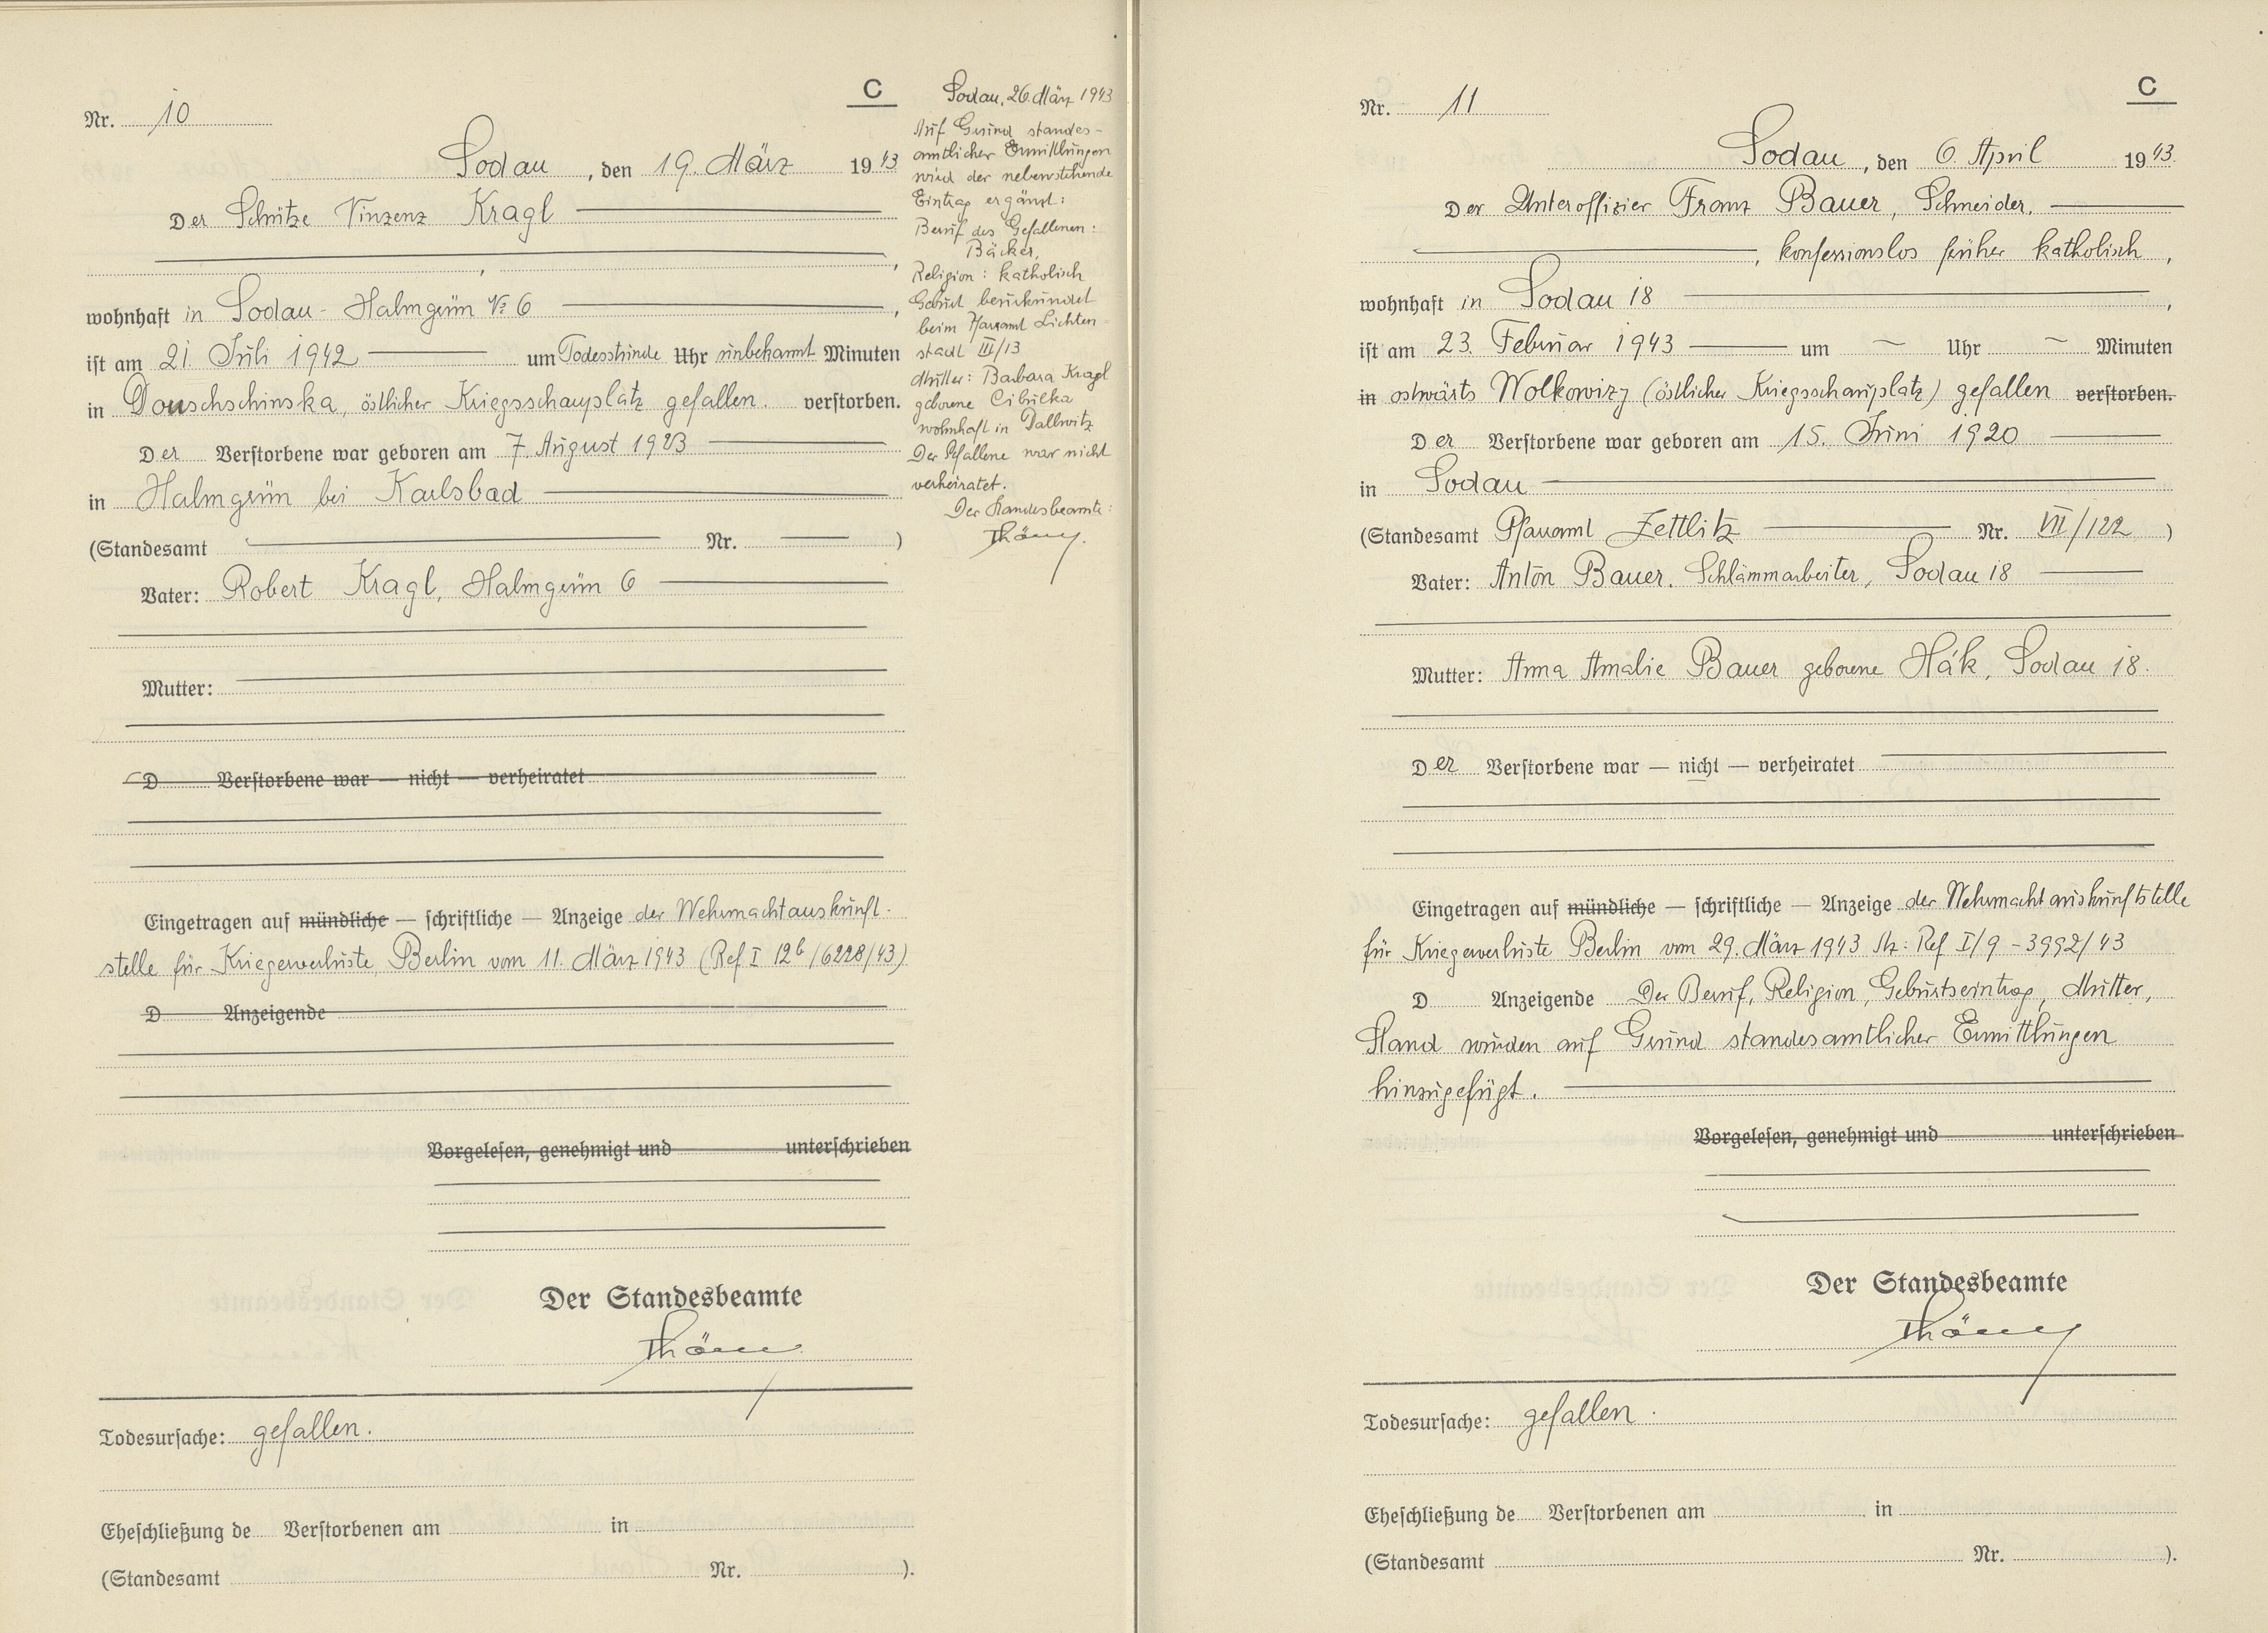 C
Nr. 10
Sodau, den 19. März 1943
Der Schütze Vinzenz Kragl
,
wohnhaft in Sodau - Halmgrün № 6,
ist am 21. Juli 1942 um Todesstunde Uhr unbekannt Minuten
in Donschschinska, östlicher Kriegsschauplatz gefallen. verstorben.
Der Verstorbene war geboren am 7. August 1923
in Halmgrün bei Karlsbad
(Standesamt Nr. )
Vater: Robert Kragl, Halmgrün 6
Mutter:
D Verstorbene war — nicht — verheiratet
Eingetragen auf mündliche — schriftliche — Anzeige der Wehrmachtauskunft-
stelle für Kriegerverluste Berlin vom 11. März 1943 (Ref I 12b/6228/43)
D Anzeigende
Vorgelesen, genehmigt und unterschrieben
Der Standesbeamte
Thöm
Todesursache: gefallen.
Eheschließung de Verstorbenen am in
(Standesamt Nr. ).
Sodau, 26. März 1943
Auf Grund standes-
amtlicher Ermittlungen
wird der nebenstehende
Eintrag ergänzt:
Beruf des Gefallenen:
Bäcker,
Religion: katholisch
Geburt beurkundet
beim Pfarramt Lichten-
stadt III/13
Mutter: Barbara Kragl
geborene Cibulka
wohnhaft in Dallwitz
Der Gefallene war nicht
verheiratet.
Der Standesbeamte:
C
Nr. 11
Sodau, den 6. April 1943.
Der Unteroffizier Franz Bauer, Schneider,
, konfessionslos früher katholisch,
wohnhaft in Sodau 18,
ist am 23. Februar 1943 um — Uhr — Minuten
in ostwärts Wolkowizy (östlicher Kriegsschauplatz) gefallen verstorben.
Der Verstorbene war geboren am 15. Juni 1920
in Sodau
(Standesamt Pfarramt Zettlitz Nr. VII/122)
Vater: Anton Bauer, Schlämmarbeiter, Sodau 18
Mutter: Anna Amalie Bauer geborene Hák, Sodau 18.
Der Verstorbene war — nicht — verheiratet
Eingetragen auf mündliche — schriftliche — Anzeige der Wehrmachtauskunftstelle
für Kriegerverluste Berlin vom 29. März 1943 Az: Ref I/9 - 3992/43
D Anzeigende Der Beruf, Religion, Geburtseintrag, Mutter,
Stand wurden auf Grund standesamtlicher Ermittlungen
hinzugefügt.
Vorgelesen, genehmigt und unterschrieben
Der Standesbeamte
Todesursache: gefallen.
Eheschließung de Verstorbenen am in
(Standesamt Nr. ).